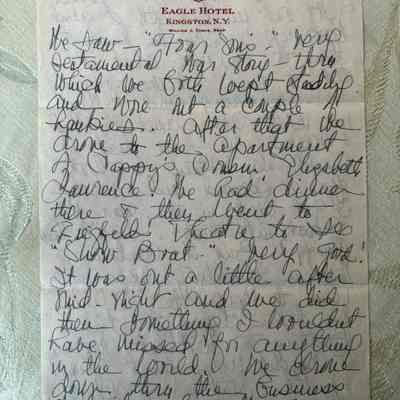 EAGLE HOTEL
KINGSTON, N.Y.
We saw - "Four Sons." Very
sentamental War Story - thru
which we both wept steadily
and wore out a couple of
hankies. After that we
drove to the apartment
of Pappy's women, Elizabeth
Lawrence. We had dinner
there & then went to
Ziegfeld Theatre to see
"Show Boat." Very good!
It was out a little after
mid-night and we did
then something I wouldnt
have missed for anything
in the world. We drove
down thru the business